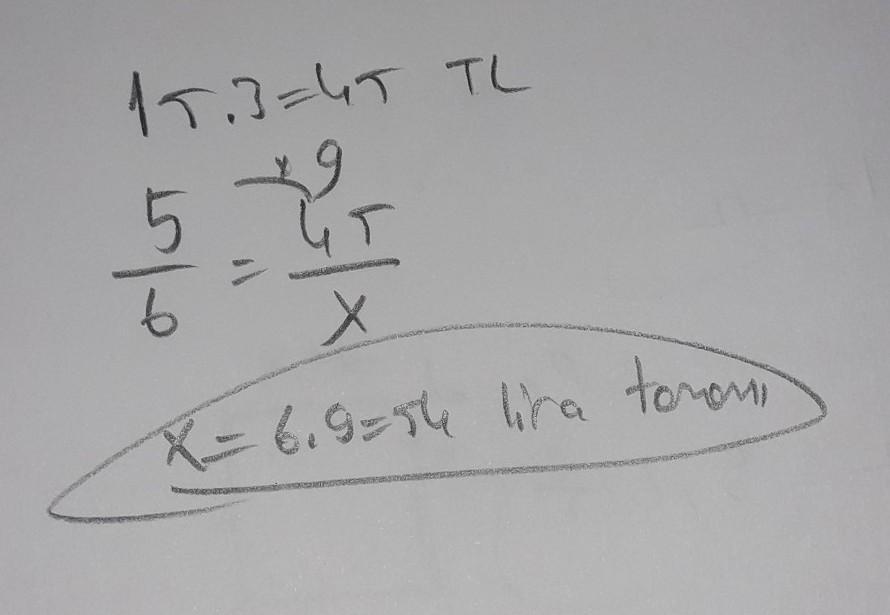 15.3=45 TL
x9
5/6 = 45/x
x=6.9=54 lira tamamı